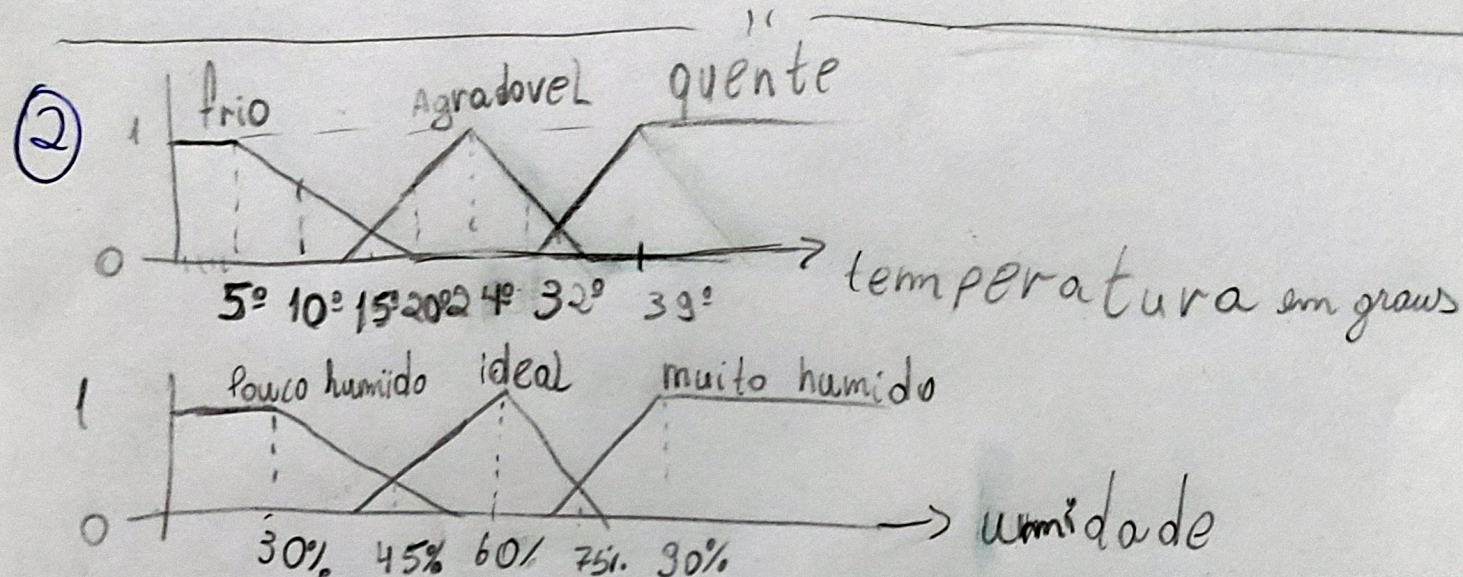 2
frio Agradovel quente
1
0
5º 10º 15º 20º 24º 32º 39º temperatura em graus
Pouco humido ideal muito humido
1
0
30% 45% 60% 75%. 90% umidade